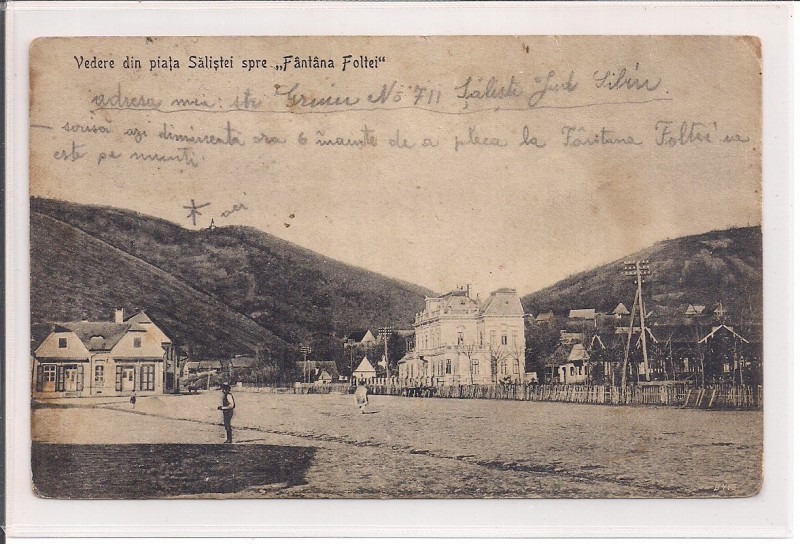 Vedere din piața Săliștei spre „Fântâna Foltei“
adresa mea: str Grivii No 711 Săliște Jud Sibiu.
— scrisă azi dimineață ora 6 înainte de a pleca la Fântâna Foltei
este pe munte
aci